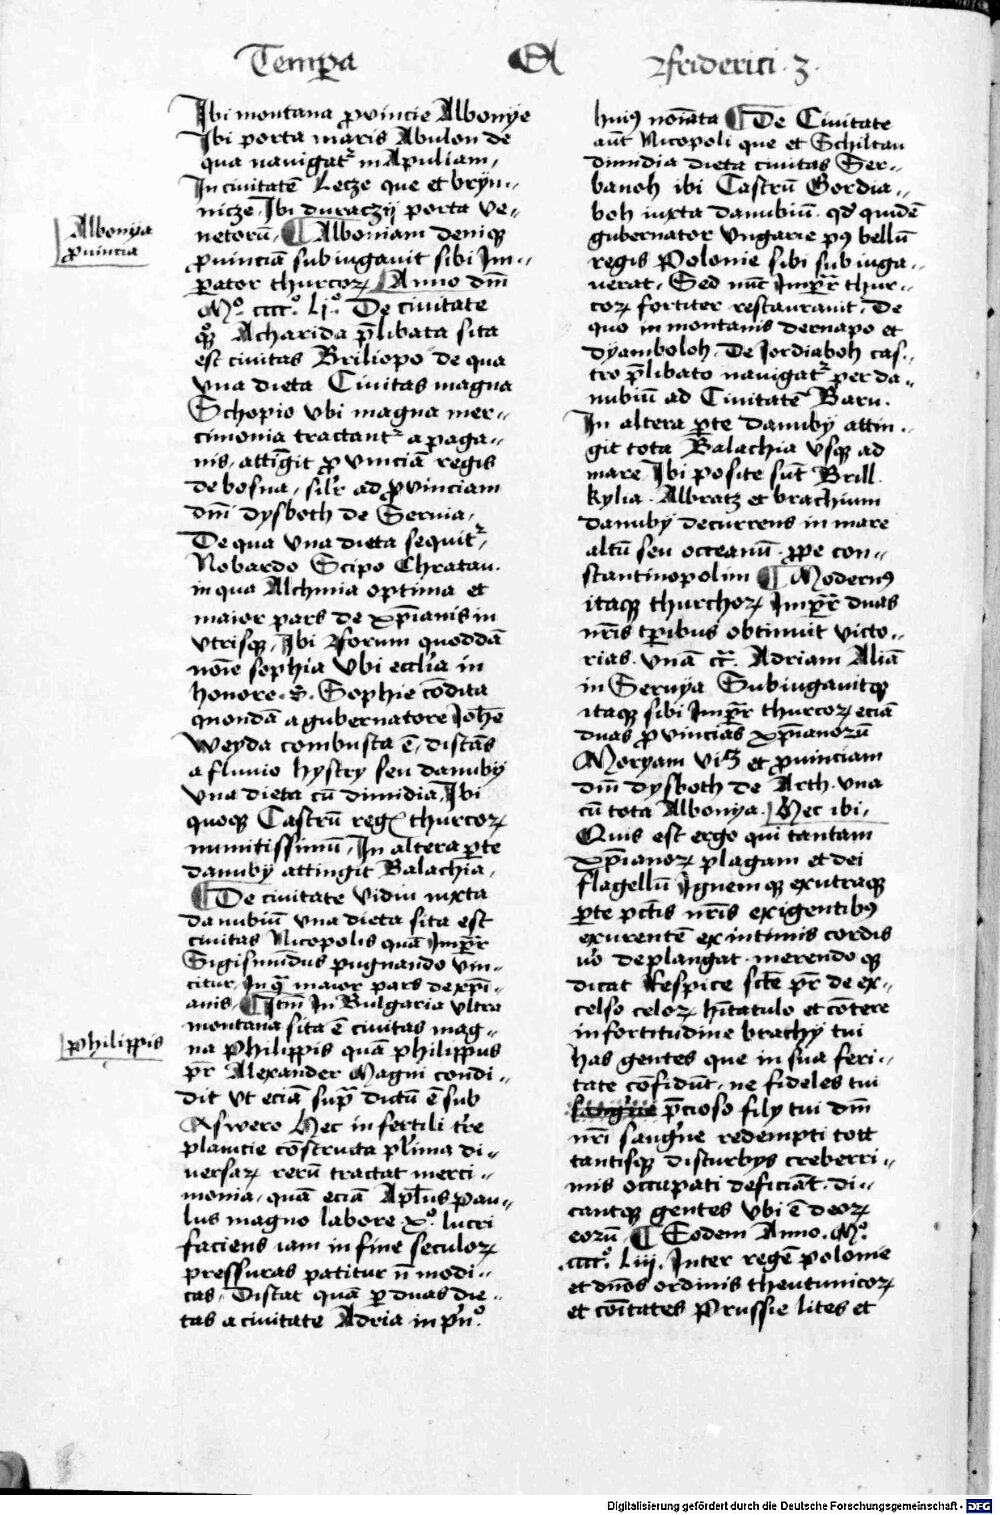 Tempa
Friderici · 3 ·
Ibi montana ꝓvincie Albonÿe
Ibi porta maris Abulon de
qua nauigatʳ in Apuliam,
In ciuitatē Lecze que et brÿn-
nicze. Ibi duraczÿ porta ve-
netorū. ¶ Alboniam deniqꝫ
ꝓuinciā subiugauit sibi Im-
ꝑator thurcoꝝ Anno dm̄
Mº ccccº Ljº. De ciuitate
Acharida p̄libata sita
est ciuitas Briliopo de qua
vna dieta Ciuitas magna
Schopio vbi magna mer-
cimonia tractantʳ a paga-
nis, attīgit ꝓvinciā regis
de bosna, silʳr ad ꝓvinciam
dm̄ dysboth de Seruia,
De qua vna dieta sequitʳ,
Nobardo Scipo Chratau.
in qua Alchimia optima et
maior pars de xp̄ianis in
vtrisqꝫ, Ibi Forum quoddā
noīe sophia vbi eccl̄ia in
honore · S · Sophie cōdita
quondā a gubernatore Joh̄e
weyda combusta ē, distās
a fluuio hystry seu danubÿ
vna dieta cū dimidia, Ibi
quoqꝫ Castrū reg thurcoꝝ
munitissimū, In altera ꝑte
danubÿ attingit Balachia,
¶ De ciuitate vidin iuxta
danubiū vna dieta sita est
ciuitas Nicopolis quā Imꝑr̄
Sigismūdus pugnando vin-
citur, In q̄ maior pars de xp̄i-
anis. ¶ Itm̄ In Bulgaria vltra
montana sita ē ciuitas mag-
na philippis quā philippus
pr̄ Alexander Magni condi-
dit vt eciā supra dictū ē sub
Aswero Hec in fertili tr̄e
planicie cōstructa pl̄ima di-
versaꝝ rerū tractat merci-
monia, quā eciā Apl̄us pau-
lus magno labore xº. lucri
faciens iam in fine seculoꝝ
pressuras patitur n̄ modi-
cas, Distat quā ꝑ duas die-
tas a ciuitate Adria in pn̄º.
Albonÿa
ꝓuincia
philippis
huiꝰ noīata ¶ De Ciuitate
aūt Nicopoli que et Schiltau
dimidia dieta ciuitas Ser-
banoh ibi Castrū Gordia-
boh iuxta danubiū · qd̄ quidē
gubernator vngarie pꝰ bellū
regis Polonie sibi subiuga-
uerat. Sed nūc Imꝑr̄ thur-
coꝝ fortiter restaurauit, De
quo in montanis dernapo et
dyamboloh, De Jordiaboh cas-
tro p̄libato nauigatʳ per da-
nubiū ad Ciuitatē Baru.
In altera ꝑte danubÿ attin-
git tota Balachia vsqꝫ ad
mare, Ibi posite sūt Brill
kylia · Albratz et brachium
danubÿ decurrens in mare
altū seu occeanū · ꝓpe con-
stantinopolim ¶ Modernꝰ
itaqꝫ thurchoꝝ Imꝑr̄ duas
nr̄is tꝑibus obtinuit victo-
rias · vnā cr̄. Adriam Aliā
in Seruÿa Subiugauitqꝫ
itaqꝫ sibi Imꝑr̄ thurcoꝝ eciā
duas ꝓvincias xp̄ianorū
Moryam viꝫ et ꝓuinciam
dm̄ dysboth de Arth · vna
cū tota Albonya. Hec ibi,
Quis est ergo qui tantam
xp̄ianoꝝ plagam et dei
flagellū Ignem qꝫ ex utraqꝫ
ꝑte pctīs nr̄is exigentibꝰ
exurentē ex intimis cordis
uº deplangat · merendo qꝫ
dicat Respice sctē pr̄ de ex-
celso celoꝝ hītatulo et cōtere
in fortitudine brathÿ tui
has gentes que in sua feri-
tate cōfidūt, ne fideles tui
p̄cioso filÿ tui dm̄
nr̄i sang̓ne redempti tott
tantisqꝫ disturbÿs creberri-
mis occupati deficiāt. di-
cantqꝫ gentes vbi ē deoꝝ
eorū. ¶ Eodem Anno. Mº.
ccccº Liij. Inter regē polonie
et dn̄os ordinis theutunicoꝝ
et cōitates Prussie lites et
Digitalisierung gefördert durch die Deutsche Forschungsgemeinschaft - DFG